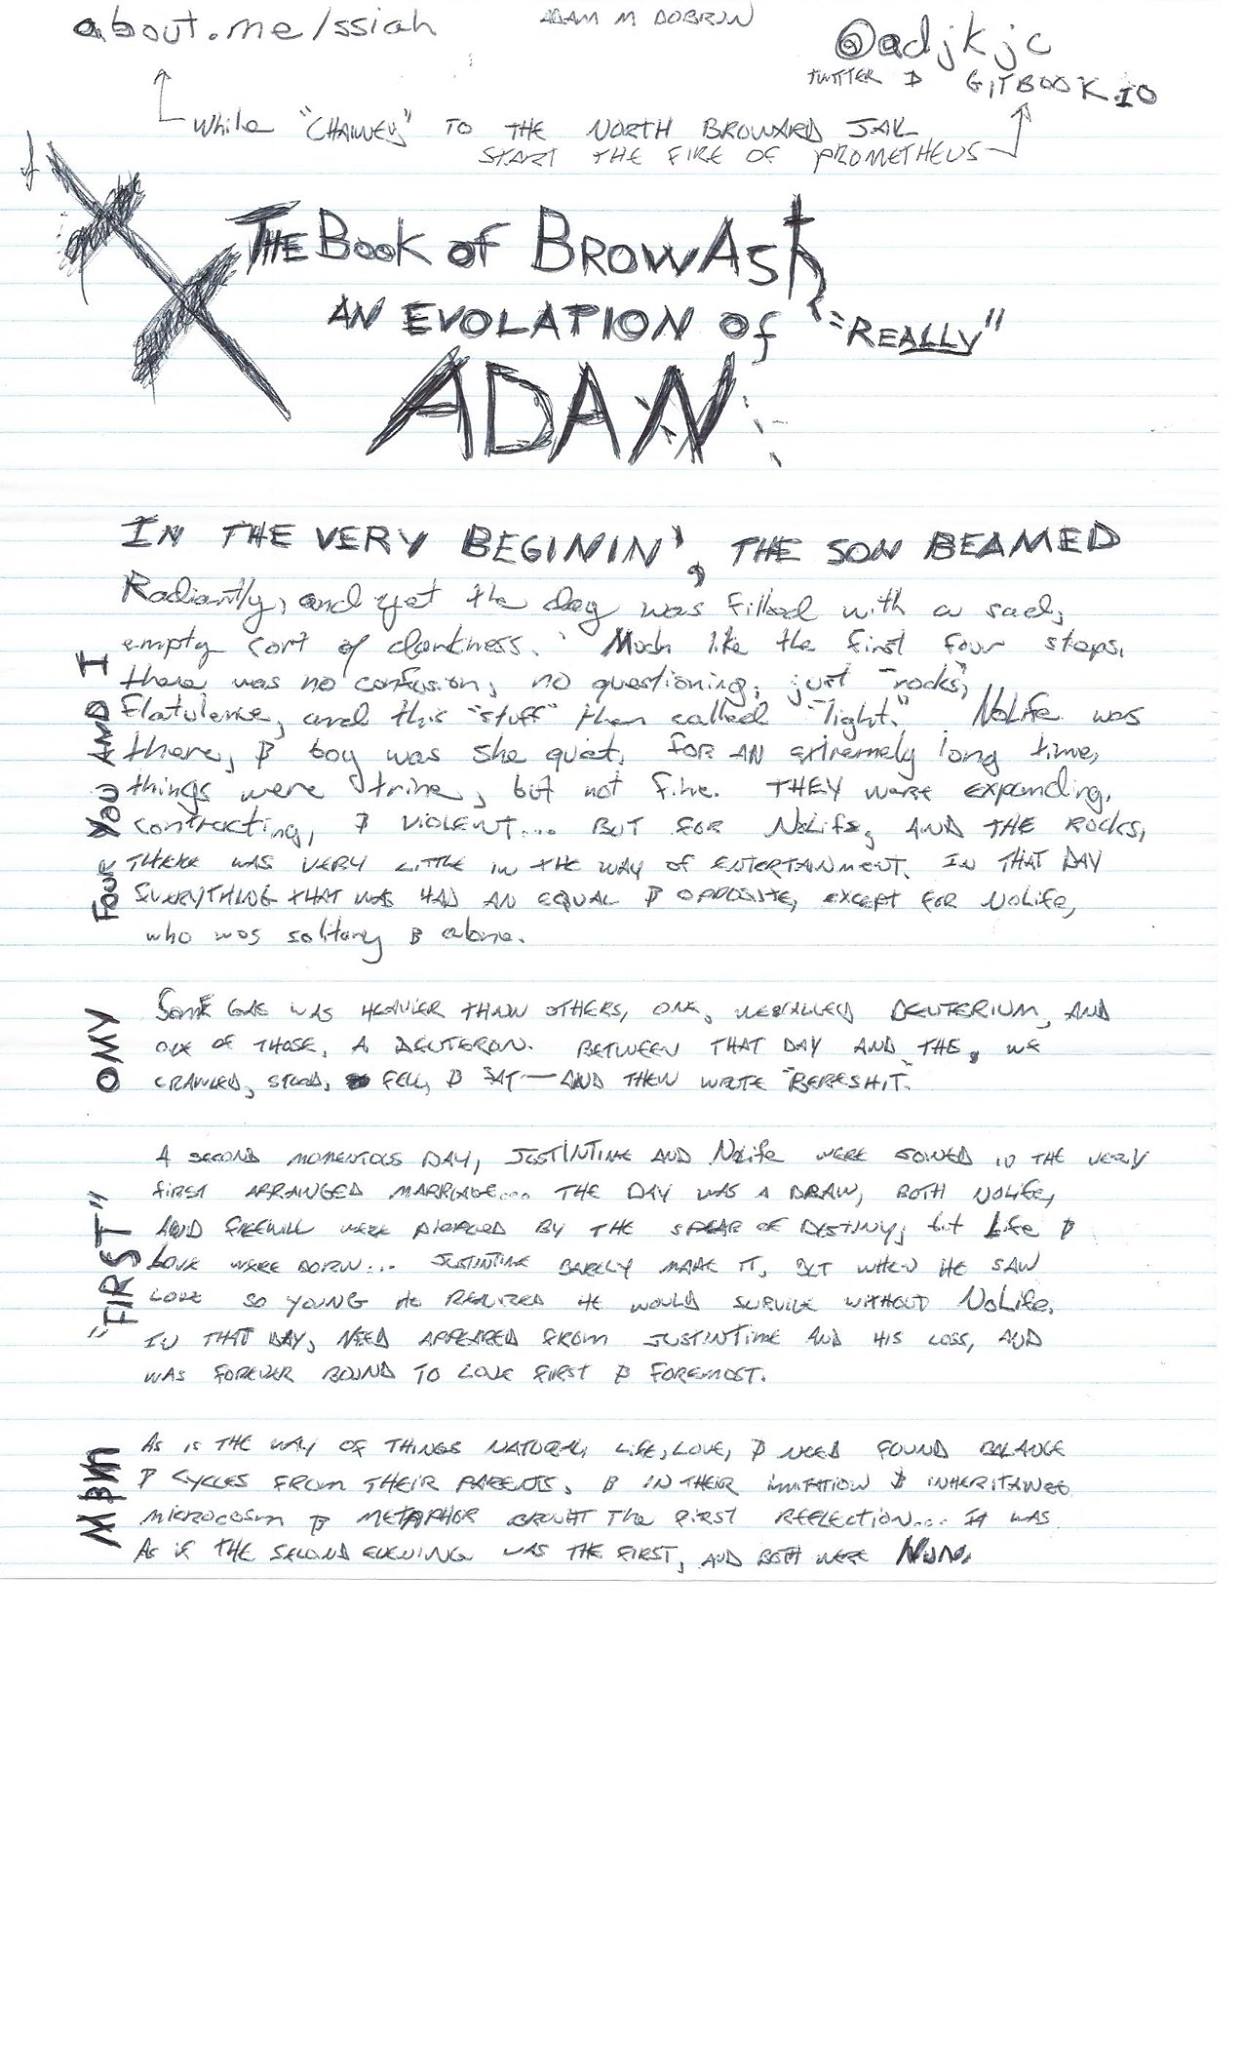 about.me/ssiah
ADAM M DOBRIN
@adjkjc
TWITTER & GITBOOK.IO
While "CHAINED" TO THE NORTH BROWARD JAIL
START THE FIRE OF PROMETHEUS
THE BOOK of BROWASh
AN EVOLATION of "REALLY"
ADAN
IN THE VERY BEGININ', THE SON BEAMED
Radiantly, and yet the day was filled with a sad,
empty sort of darkness. Much like the first four steps,
there was no confusion, no questioning, just "rocks,"
Flatulence, and this "stuff" then called "light." NoLife was
there, & boy was she quiet. FOR AN extremely long time,
things were trine, but not fine. THEY were expanding,
contracting, & VIOLENT... BUT FOR NoLife, AND THE ROCKS,
THERE WAS VERY LITTLE IN THE WAY OF ENTERTAINMENT. IN THAT DAY
EVERYTHING THAT WAS HAD AN EQUAL & OPPOSITE, EXCEPT FOR NoLife,
who was solitary & alone.
FOUR YOU AND I
SOME GAS WAS HEAVIER THAN OTHERS, ONE, WE CALLED DEUTERIUM, AND
ONE OF THOSE, A DEUTERON. BETWEEN THAT DAY AND THE, WE
CRAWLED, STOOD, FELL, & SAT—AND THEN WROTE "BERESHIT."
OMY
A SECOND MOMENTOUS DAY, JUSTINTIME AND NoLife WERE JOINED IN THE VERY
FIRST ARRANGED MARRIAGE... THE DAY WAS A DRAW, BOTH NOLIFE,
AND FREEWILL WERE PIERCED BY THE SPEAR OF DESTINY; but Life &
LOVE WERE BORN... JUSTINTIME BARELY MADE IT, BUT WHEN HE SAW
LOVE SO YOUNG HE REALIZED HE WOULD SURVIVE WITHOUT NoLife.
IN THAT DAY, NEED APPEARED FROM JUSTINTIME AND HIS LOSS, AND
WAS FOREVER BOUND TO LOVE FIRST & FOREMOST.
"FIRST"
AS IS THE WAY OF THINGS NATURAL, LIFE, LOVE, & NEED FOUND BALANCE
& CYCLES FROM THEIR PARENTS, & IN THEIR IMITATION & INHERITANCE
MICROCOSM & METAPHOR THE FIRST REFLECTION... IT WAS
AS IF THE SECOND EVENING WAS THE FIRST, AND BOTH WERE